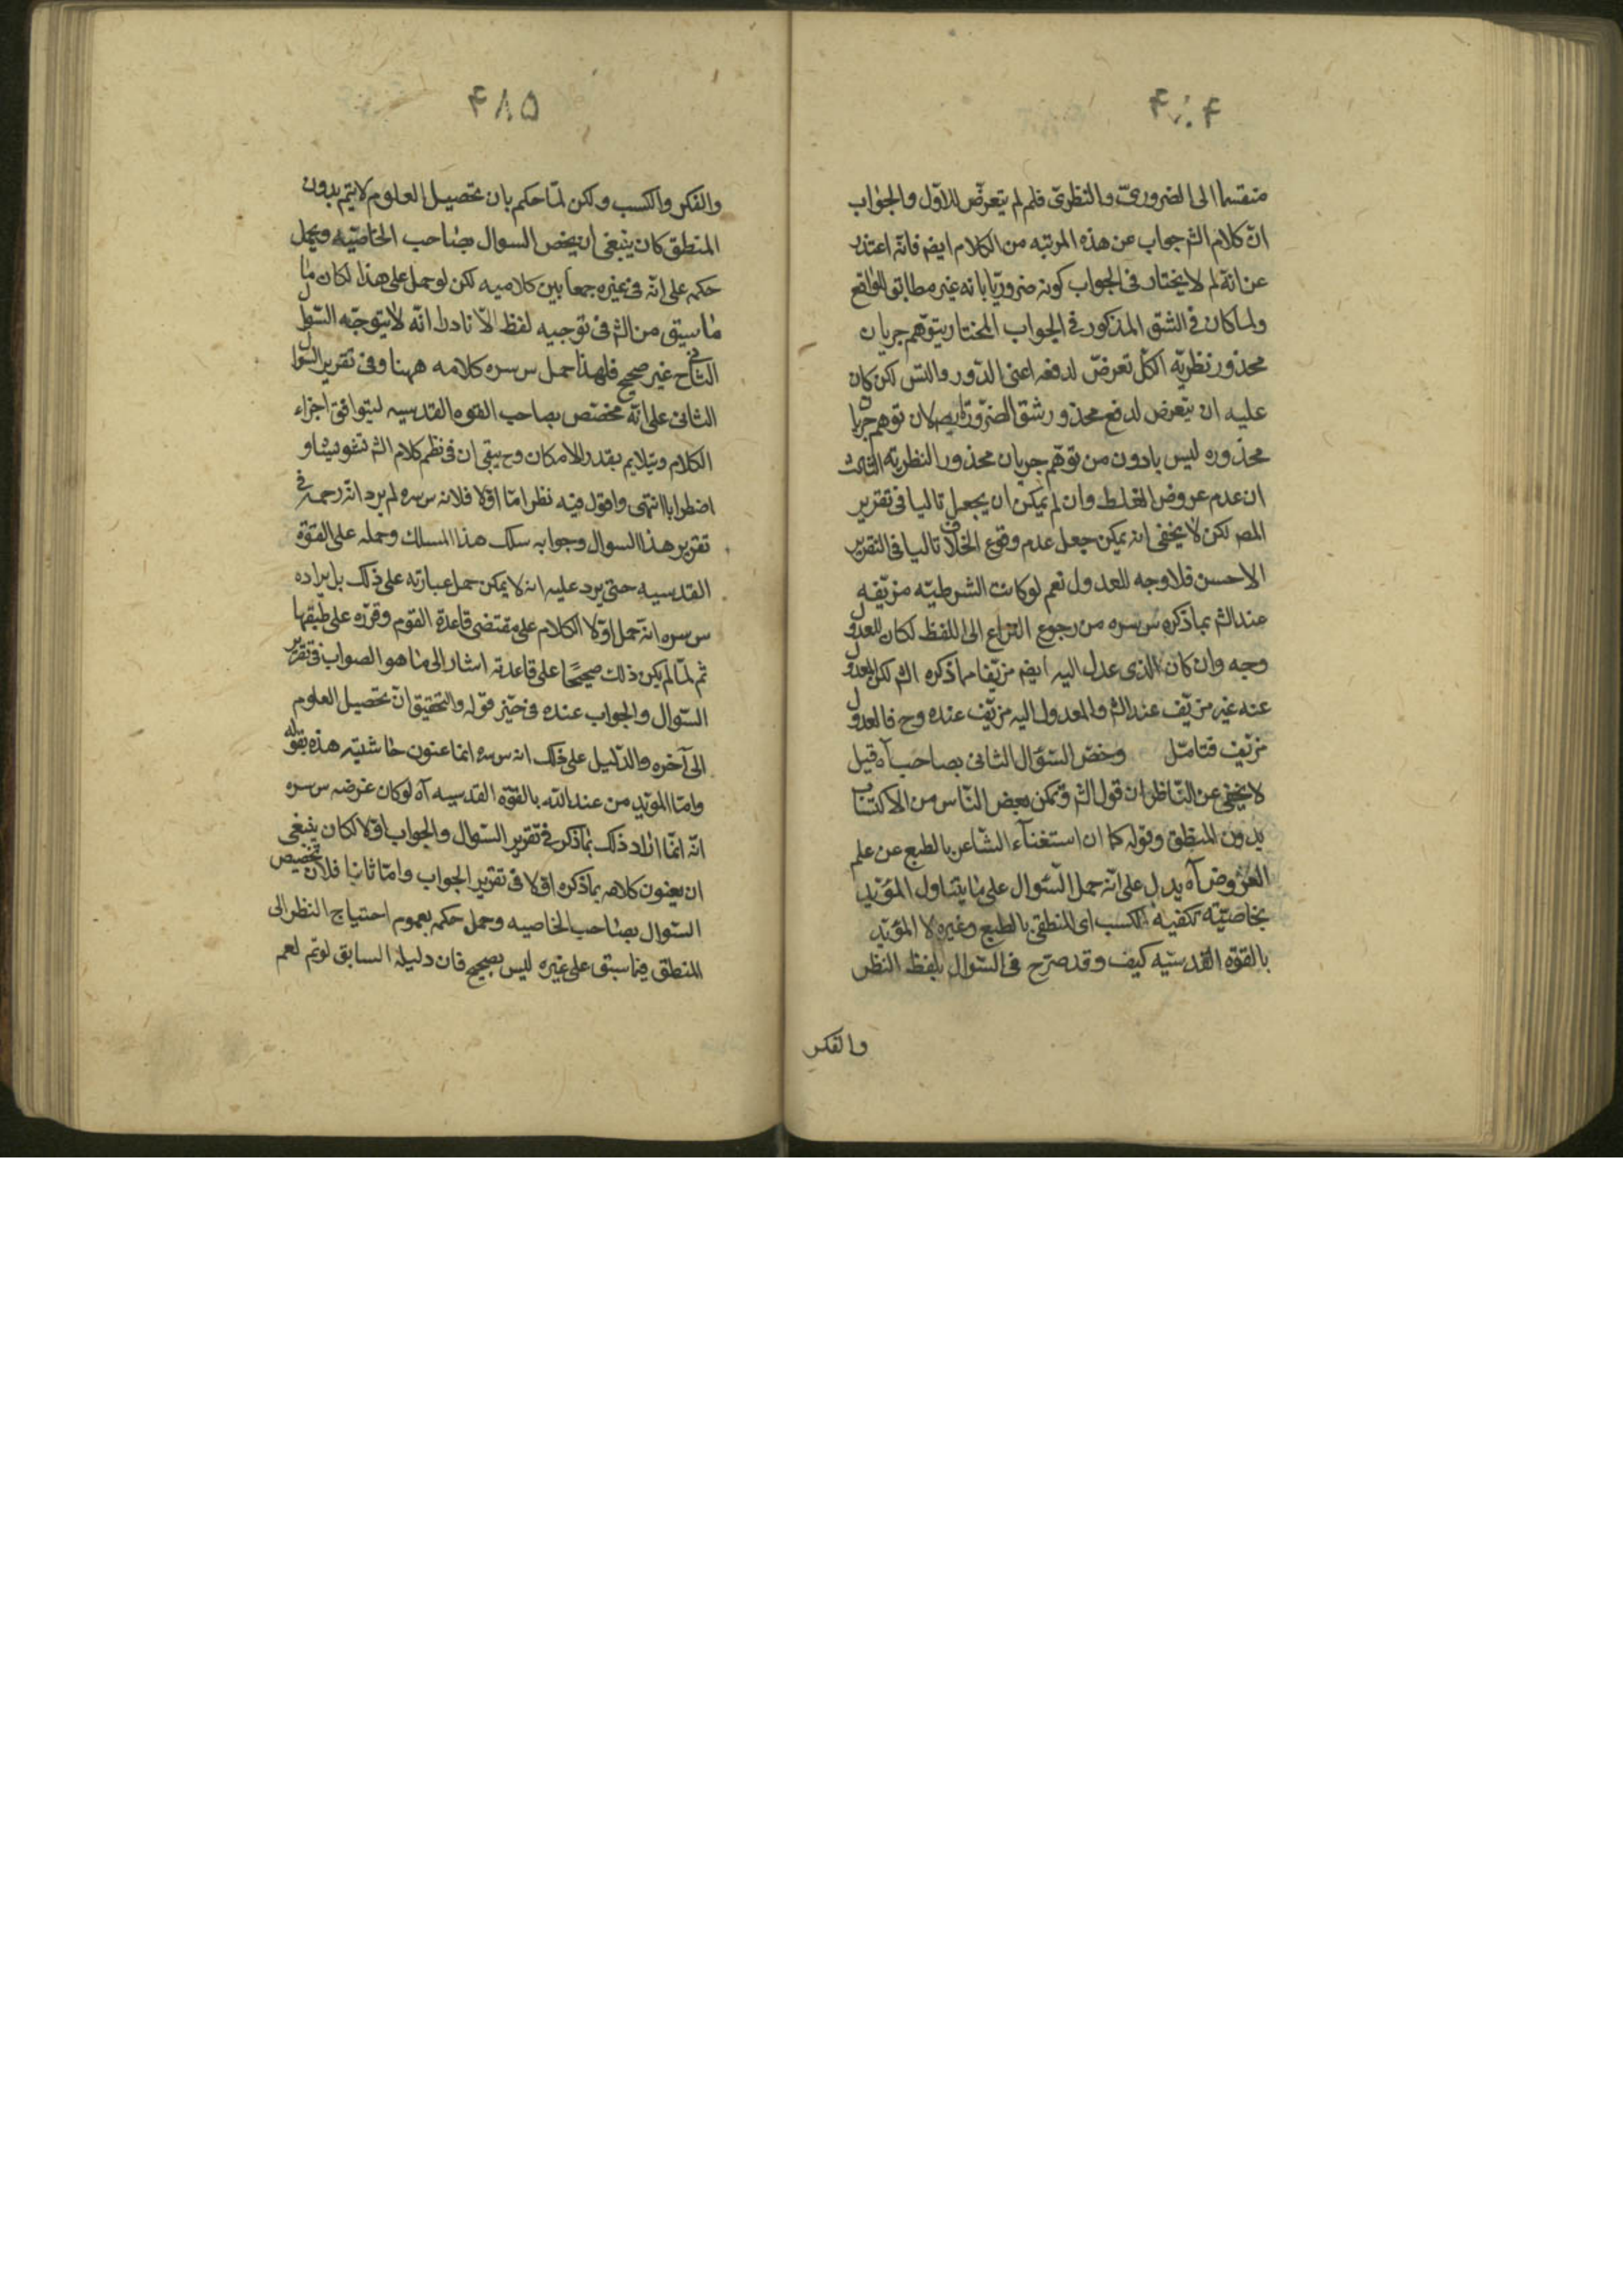 ۴۸۴
منقسما الى الضروري والنظري فلم لم يتعرض للاول والجواب
ان كلام الش جواب عن هذه المرتبه من الكلام ايضا فانه اعتذر
عن انه لم لا يختار فى الجواب كونه ضروريا بانه غير مطابق للواقع
ولما كان فى الشق المذكور فى الجواب المختار يتوهم جريان
محذور نظريه الكل تعرض لدفعه اعنى الدور والتس لكن كان
عليه ان يتعرض لدفع محذور شق الضرورة ايضا لان توهم جريان
محذوره ليس بادون من توهم جريان محذور النظريه الثالث
ان عدم عروض الغلط وان لم يمكن ان يجعل تاليا فى تقرير
المص لكن لا يخفى انه يمكن جعل عدم وقوع الخلاف تاليا فى التقرير
الاحسن فلا وجه للعدول نعم لو كانت الشرطيه مزيفه
عند الش بما ذكره س سره من رجوع النزاع الى اللفظ لكان للعدول
وجه وان كان الذى عدل اليه ايضا مزيفا بما ذكره الش لكن المعدول
عنه غير مزيف عند الش والمعدول اليه مزيف عنده وح فالعدول
مزيف فتامل وخص السؤال الثانى بصاحب آه قيل
لا يخفى عن الناظر ان قول الش وتمكن بعض الناس من الاكتساب
بدون المنطق وقوله كما ان استغناء الشاعر بالطبع عن علم
العروض آه يدل على انه حمل السؤال على ما يتناول المؤيد
بخاصيته تكفيه الكسب اى المنطقى بالطبع وغيره لا المؤيد
بالقوة القدسيه كيف وقد صرح فى السؤال بلفظ النظر
والفكر
۴۸۵
والفكر والكسب ولكن لما حكم بان تحصيل العلوم لا يتم بدون
المنطق كان ينبغى ان يخص السوال بصاحب الخاصيه ويحمل
حكمه على انه فى غيره جمعا بين كلاميه لكن لو حمل على هذا لكان ما
ما سيق من الش فى توجيه لفظ الا نادرا انه لا يتوجه السؤل
الثانى ح غير صحيح فلهذا حمل س سره كلامه ههنا وفى تقرير السوال
الثانى على انه مخصص بصاحب القوه القدسيه ليتوافق اجزاء
الكلام ويتلايم بقدر الامكان وح يبقى ان فى نظم كلام الش تشويشا و
اضطرابا انتهى واقول فيه نظر اما اولا فلانه س سره لم يرد انه رحمه فى
تقرير هذا السوال وجوابه سلك هذا المسلك وحمله على القوة
القدسيه حتى يرد عليه انه لا يمكن حمل عبارته على ذلك بل مراده
س سره انه حمل اولا الكلام على مقتضى قاعدة القوم وقرره على طبقها
ثم لما لم يكن ذلك صحيحا على قاعدته اشار الى ما هو الصواب فى تقرير
السؤال والجواب عنده فى حيز قوله والتحقيق ان تحصيل العلوم
الى آخره والدليل على ذلك انه س سره انما عنون حاشيته هذه بقوله
واما المؤيد من عند الله بالقوة القدسيه آه لو كان غرضه س سره
انه انما اراد ذلك بما ذكر فى تقرير السؤال والجواب اولا لكان ينبغى
ان يعنون كلامه بما ذكره اولا فى تقرير الجواب واما ثانيا فلان تخصيص
السؤال بصاحب الخاصيه وحمل حكمه بعموم احتياج النظر الى
المنطق فيما سبق على غيره ليس بصحيح فان دليله السابق لو تم لعم